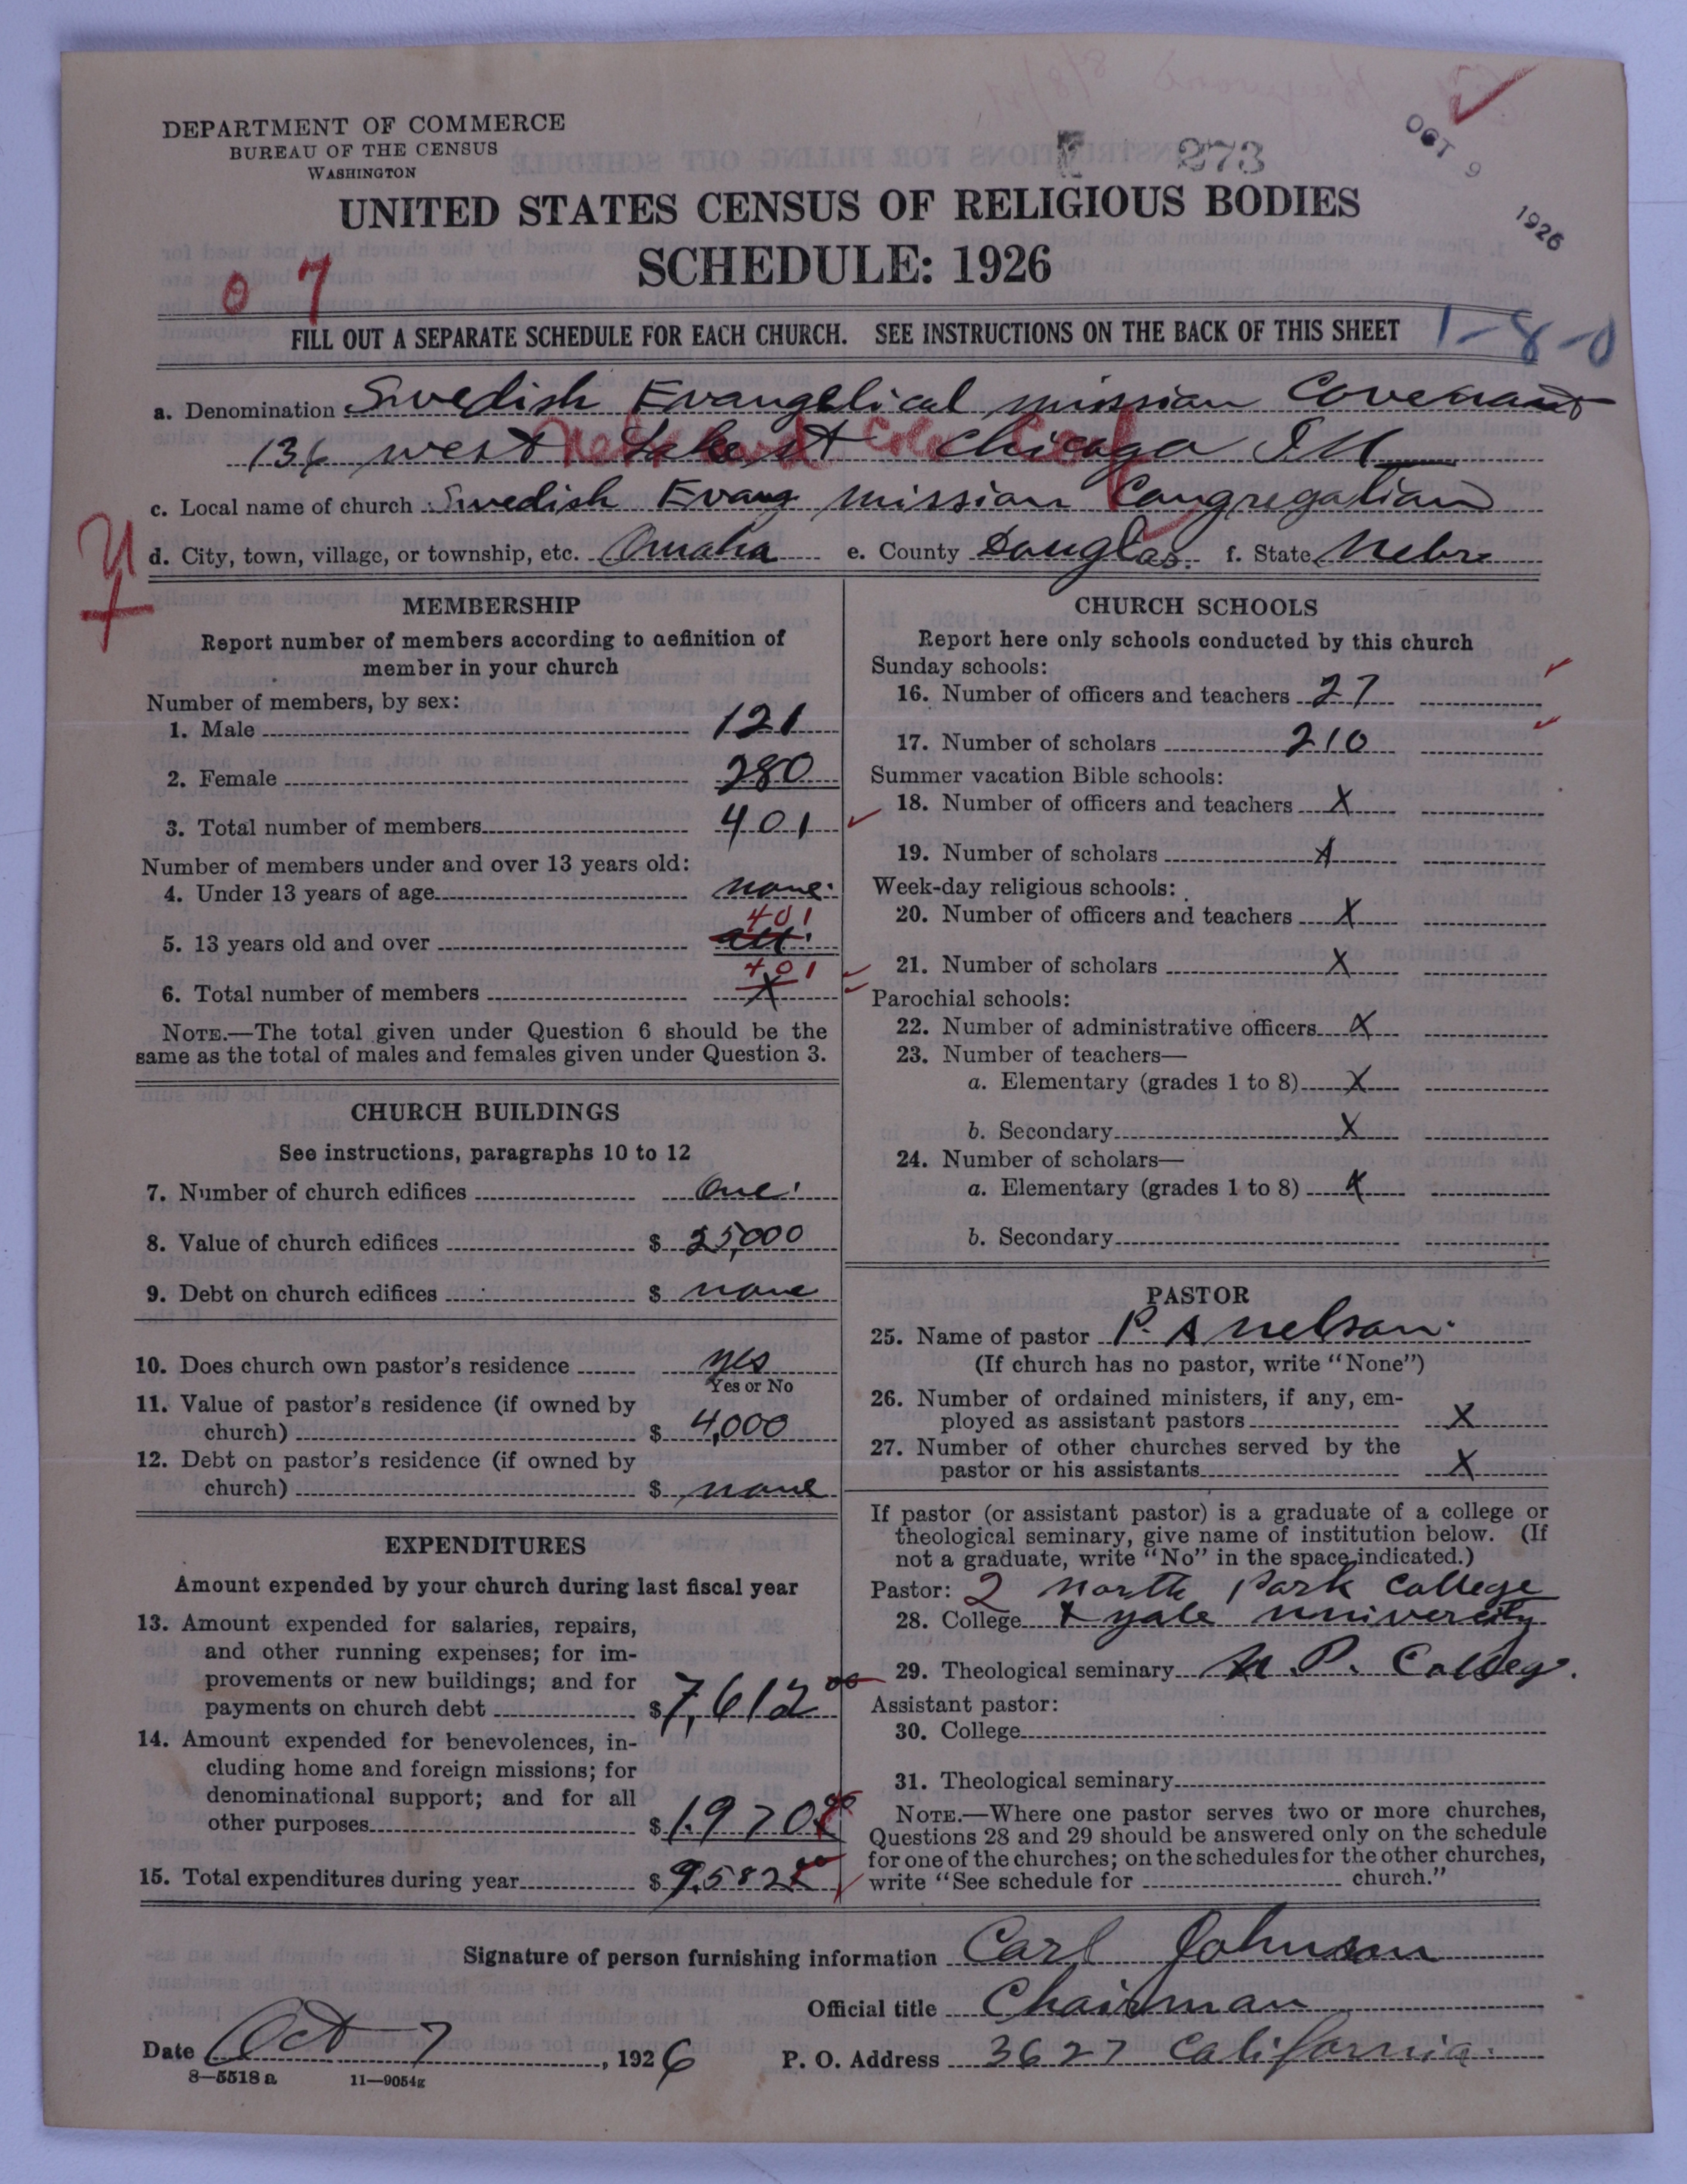 DEPARTMENT OF COMMERCE
BUREAU OF THE CENSUS
WASHINGTON
273
OCT 9 1926
UNITED STATES CENSUS OF RELIGIOUS BODIES
SCHEDULE: 1926
0 7
FILL OUT A SEPARATE SCHEDULE FOR EACH CHURCH. SEE INSTRUCTIONS ON THE BACK OF THIS SHEET
1-8-0
a. Denomination Swedish Evangelical mission Covenant
136 west Lake st Chicago Ill
c. Local name of church Swedish Evang mission Congregation
d. City, town, village, or township, etc. Omaha e. County Douglas. f. State Nebr
MEMBERSHIP
Report number of members according to definition of
member in your church
Number of members, by sex:
1. Male 121
2. Female 280
3. Total number of members 401
Number of members under and over 13 years old:
4. Under 13 years of age none
401
5. 13 years old and over all
401
6. Total number of members X
NOTE.—The total given under Question 6 should be the
same as the total of males and females given under Question 3.
CHURCH BUILDINGS
See instructions, paragraphs 10 to 12
7. Number of church edifices One
8. Value of church edifices $ 25,000
9. Debt on church edifices $ none
10. Does church own pastor's residence yes
Yes or No
11. Value of pastor's residence (if owned by
church) $ 4,000
12. Debt on pastor's residence (if owned by
church) $ none
EXPENDITURES
Amount expended by your church during last fiscal year
13. Amount expended for salaries, repairs,
and other running expenses; for im-
provements or new buildings; and for
payments on church debt $ 7,612 00
14. Amount expended for benevolences, in-
cluding home and foreign missions; for
denominational support; and for all
other purposes $ 1,970
15. Total expenditures during year $ 9,582
CHURCH SCHOOLS
Report here only schools conducted by this church
Sunday schools:
16. Number of officers and teachers 27
17. Number of scholars 210
Summer vacation Bible schools:
18. Number of officers and teachers X
19. Number of scholars X
Week-day religious schools:
20. Number of officers and teachers X
21. Number of scholars X
Parochial schools:
22. Number of administrative officers X
23. Number of teachers—
a. Elementary (grades 1 to 8) X
b. Secondary X
24. Number of scholars—
a. Elementary (grades 1 to 8) X
b. Secondary
PASTOR
25. Name of pastor P. A Nelson
(If church has no pastor, write "None")
26. Number of ordained ministers, if any, em-
ployed as assistant pastors X
27. Number of other churches served by the
pastor or his assistants X
If pastor (or assistant pastor) is a graduate of a college or
theological seminary, give name of institution below. (If
not a graduate, write "No" in the space indicated.)
Pastor: 2 North Park College
28. College & yale univercity
29. Theological seminary N. P. Colleg.
Assistant pastor:
30. College
31. Theological seminary
NOTE.—Where one pastor serves two or more churches,
Questions 28 and 29 should be answered only on the schedule
for one of the churches; on the schedules for the other churches,
write "See schedule for church."
Signature of person furnishing information Carl Johnson
Official title Chairman
Date Oct 7, 1926 P. O. Address 3627 California.
8—5518 a 11—9054g